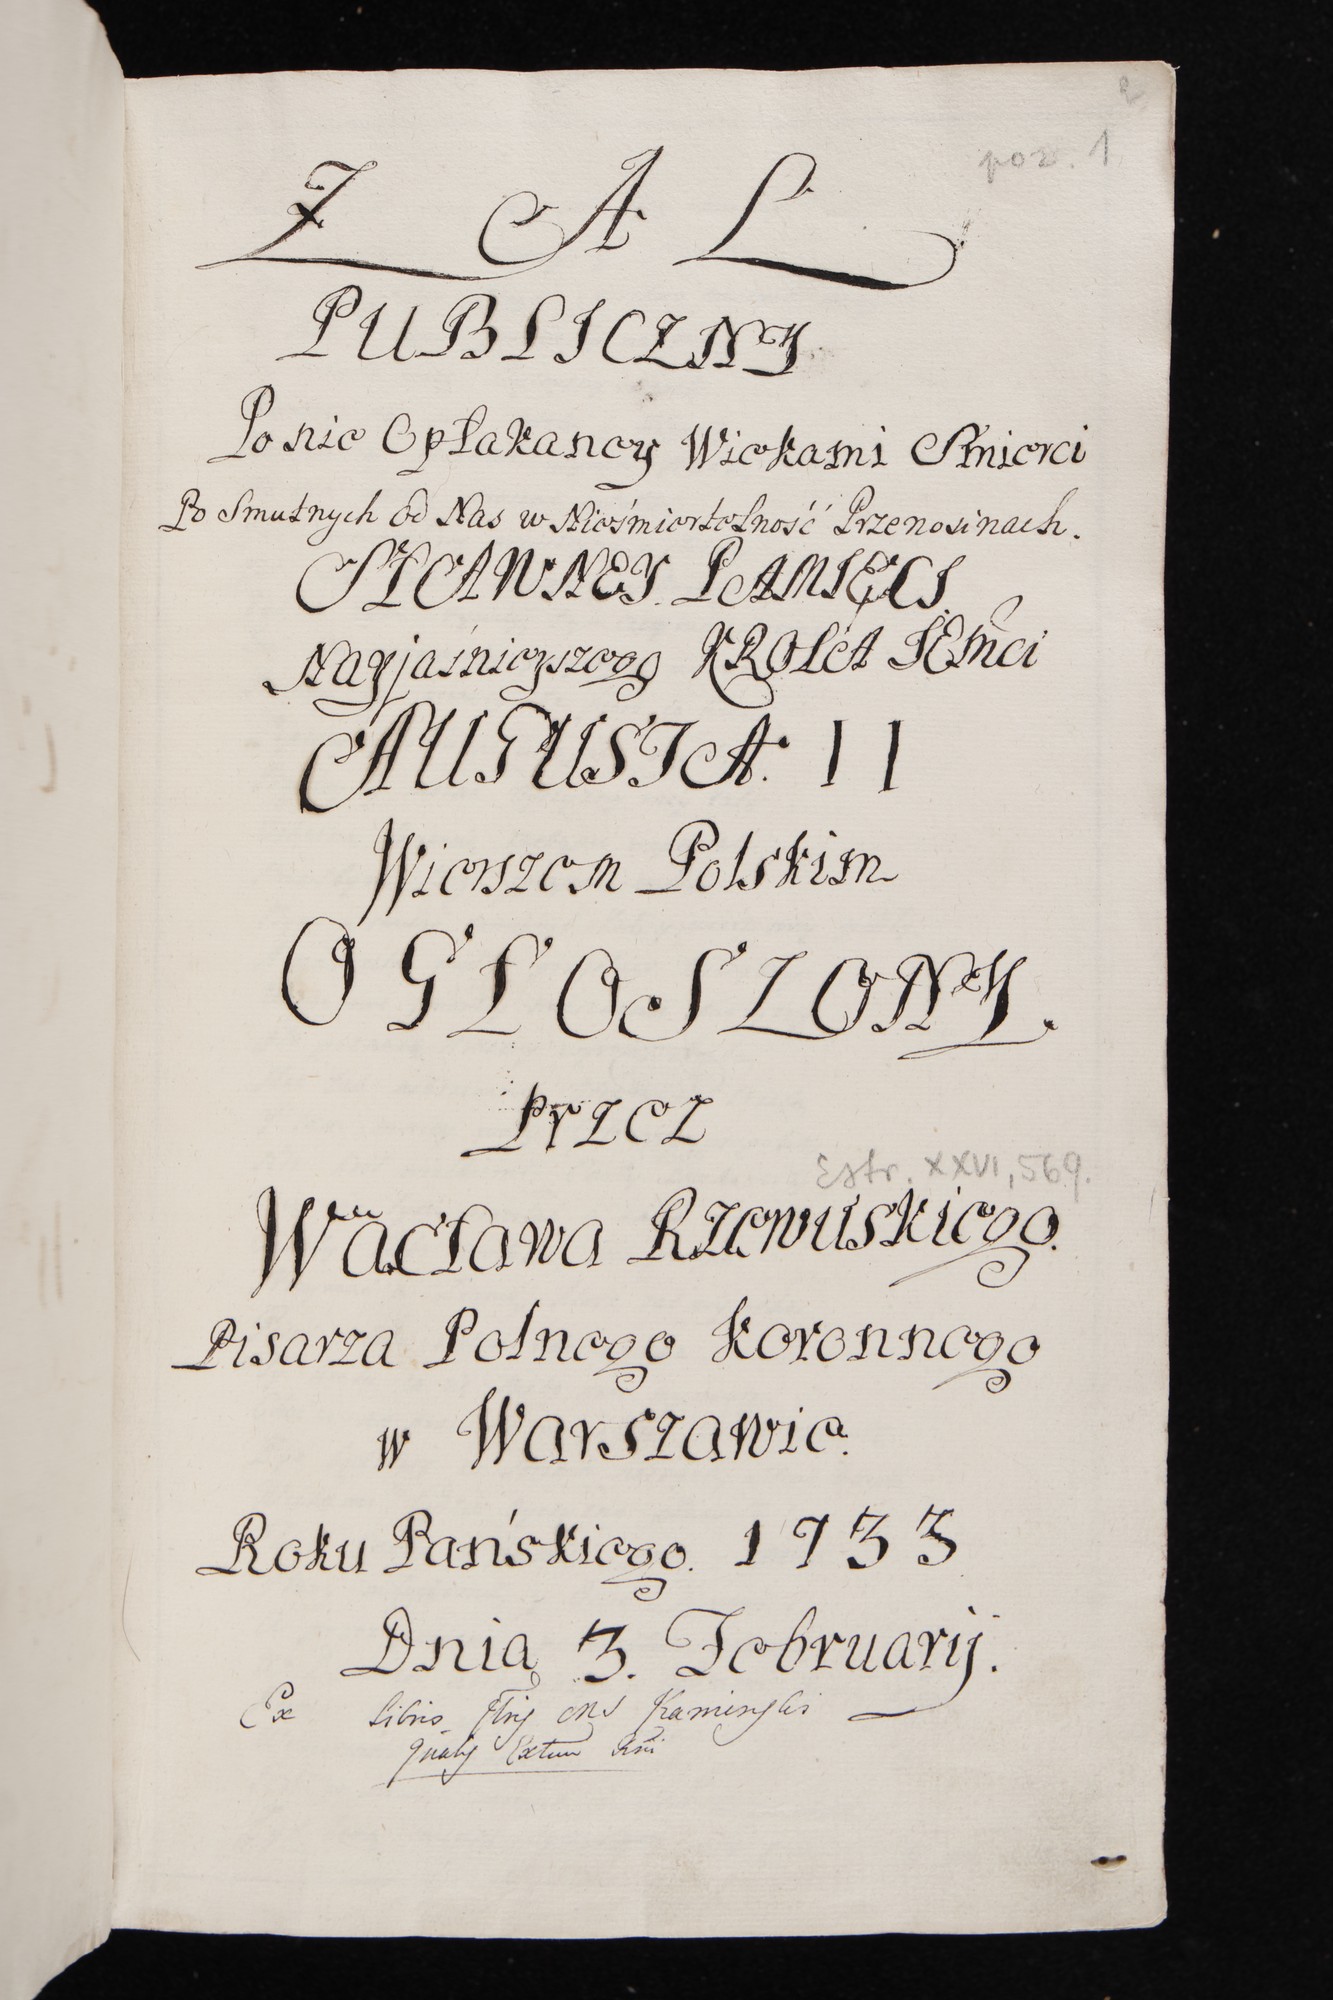 2
poz. 1
ZAL
PUBLICZNY
Po nie Opłakaney Wiekami Śmierci
Po Smutnych od Nas w Nieśmiertelność Przenosinach.
SŁAWNEY PAMIĘCI
Nayjaśnieyszego KROLA JEMći
AUGUSTA II
Wierszem Polskim
OGŁOSZONY.
Przez
Estr. XXVI, 569.
Wacława Rzewuskiego.
Pisarza Polnego Koronnego
w Warszawie.
Roku Pańskiego. 1733
Dnia 3. February.
Ex libris Kaminski